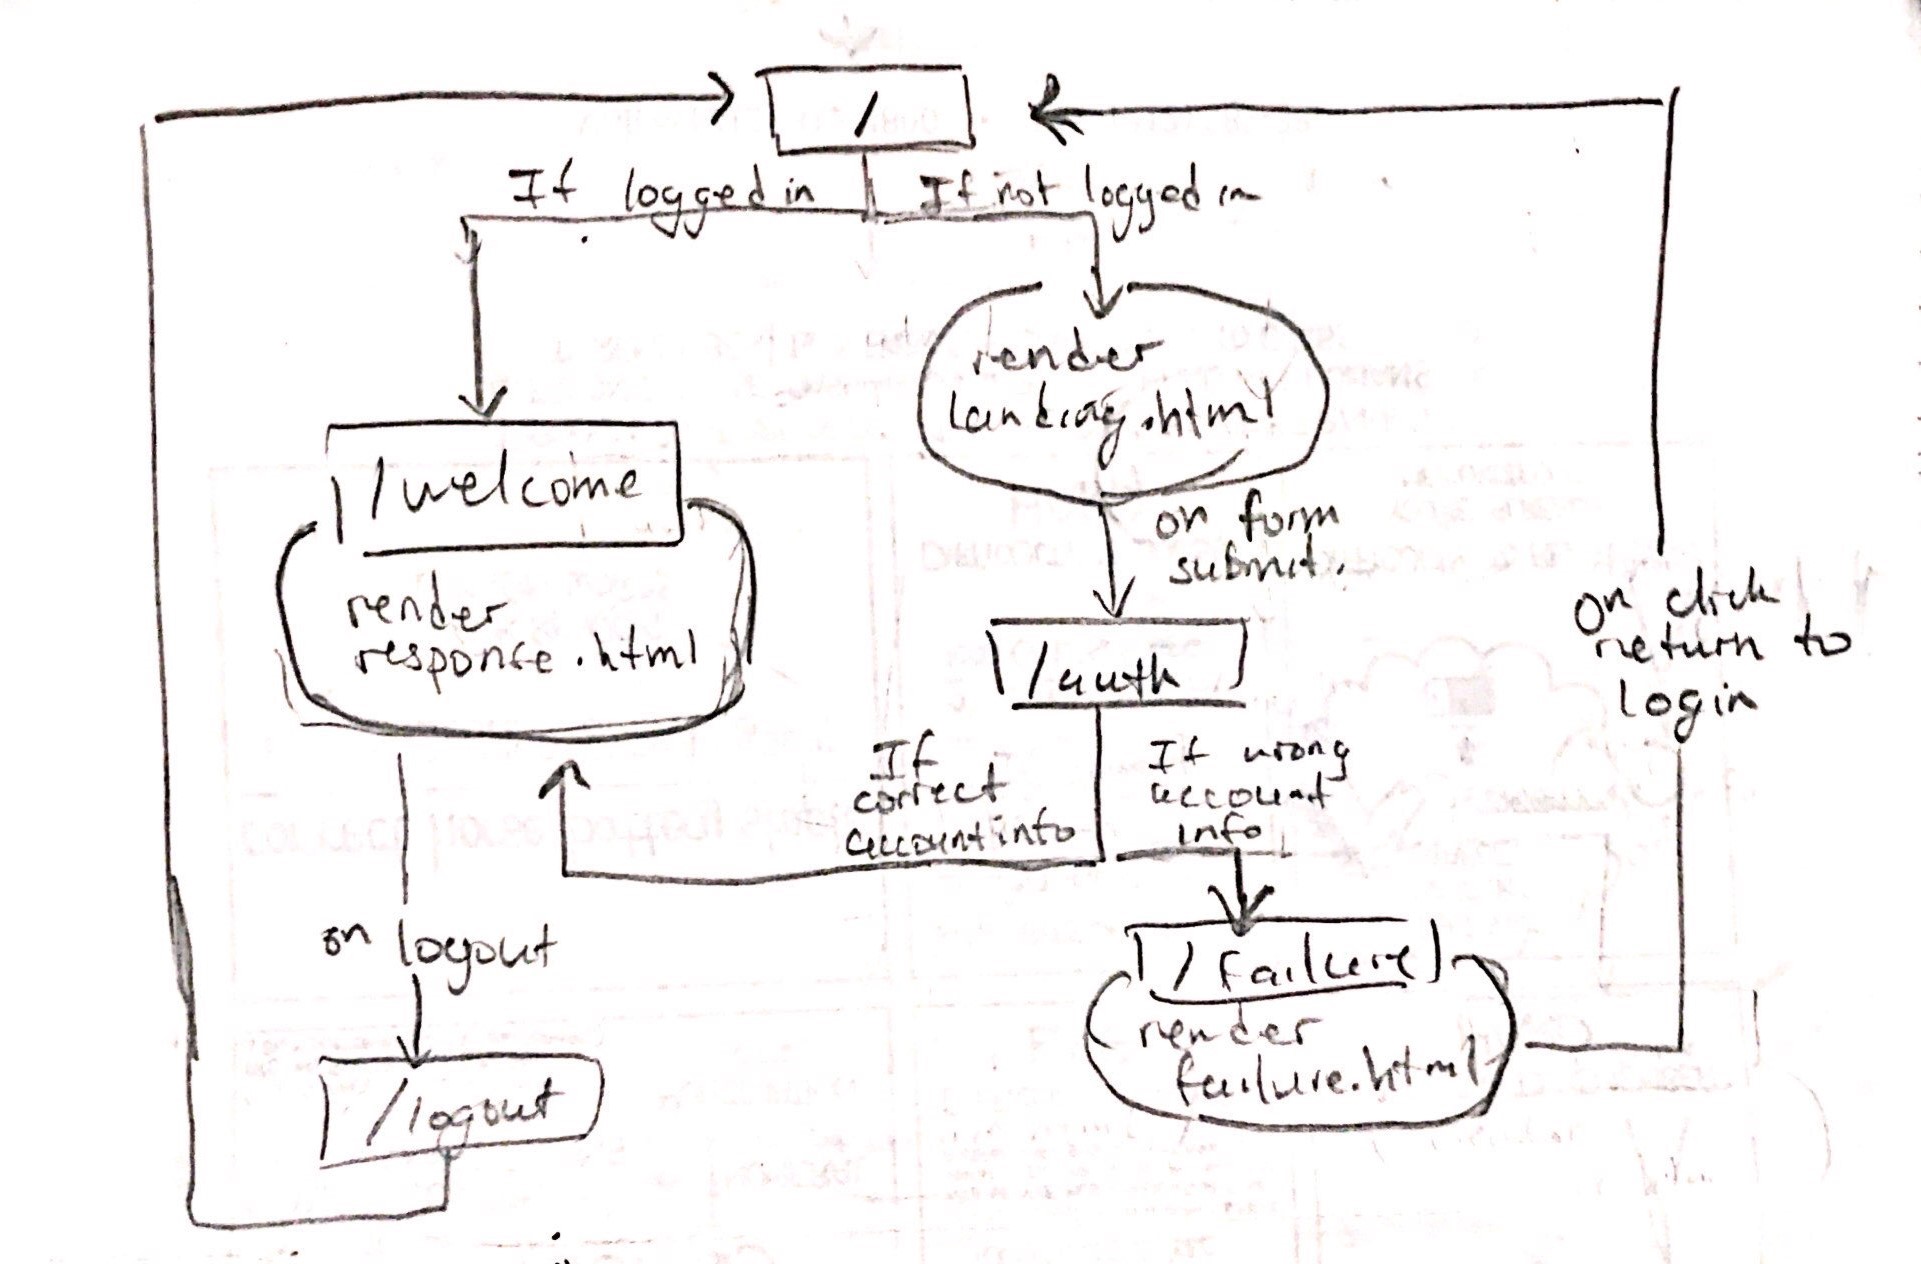 /
If logged in
If not logged in
render
landing.html
/welcome
on form
submit.
render
response.html
/auth
on click
return to
login
If
correct
account info
If wrong
account
info
on logout
/failure
render
failure.html
/logout